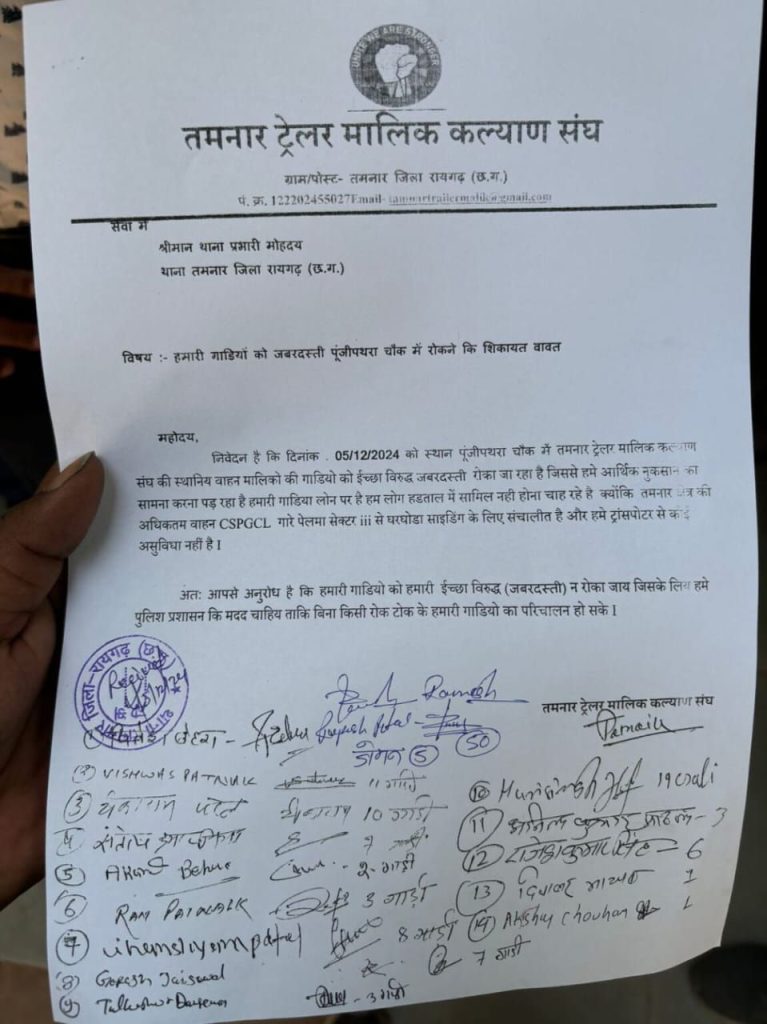 UNITE WE ARE STRONGER
तमनार ट्रेलर मालिक कल्याण संघ
ग्राम/पोस्ट- तमनार जिला रायगढ़ (छ.ग.)
पं. क्र. 122202455027Email- tamnartrailermalik@gmail.com
सेवा में
श्रीमान थाना प्रभारी मोहदय
थाना तमनार जिला रायगढ़ (छ.ग.)
विषय :- हमारी गाडियों को जबरदस्ती पूंजीपथरा चौक में रोकने कि शिकायत वावत
महोदय,
निवेदन है कि दिनांक . 05/12/2024 को स्थान पूंजीपथरा चौक में तमनार ट्रेलर मालिक कल्याण
संघ की स्थानिय वाहन मालिको की गाडियो को ईच्छा विरुद्ध जबरदस्ती रोका जा रहा है जिससे हमे आर्थिक नुकसान का
सामना करना पड़ रहा है हमारी गाडिया लोन पर है हम लोग हडताल में सामिल नही होना चाह रहे है क्योंकि तमनार क्षेत्र की
अधिकतम वाहन CSPGCL गारे पेलमा सेक्टर iii से घरघोडा साइडिंग के लिए संचालीत है और हमे ट्रांसपोटर से कोई
असुविधा नहीं है I
अतः आपसे अनुरोध है कि हमारी गाडियो को हमारी ईच्छा विरुद्ध (जबरदस्ती) न रोका जाय जिसके लिय हमे
पुलिश प्रशासन कि मदद चाहिय ताकि बिना किसी रोक टोक के हमारी गाडियो का परिचालन हो सके I
जिला-रायगढ़ (छ.ग.)
Received
Ramesh
तमनार ट्रेलर मालिक कल्याण संघ
5 50
2 VISHWAS PATNAIK 11 गाड़ी
3 पटेल 10 गाड़ी
4 संतोष 7 गाड़ी
5 Behera 2 गाड़ी
6 RAM PATNAIK 3 गाड़ी
7 patel 8 गाड़ी
8 Ganesh Jaiswal 7 गाड़ी
9 3 गाड़ी
10 19
11 अनिल कुमार - 3
12 राजेश कुमार सिंह - 6
13 1
14 Akshay Chouhan 1